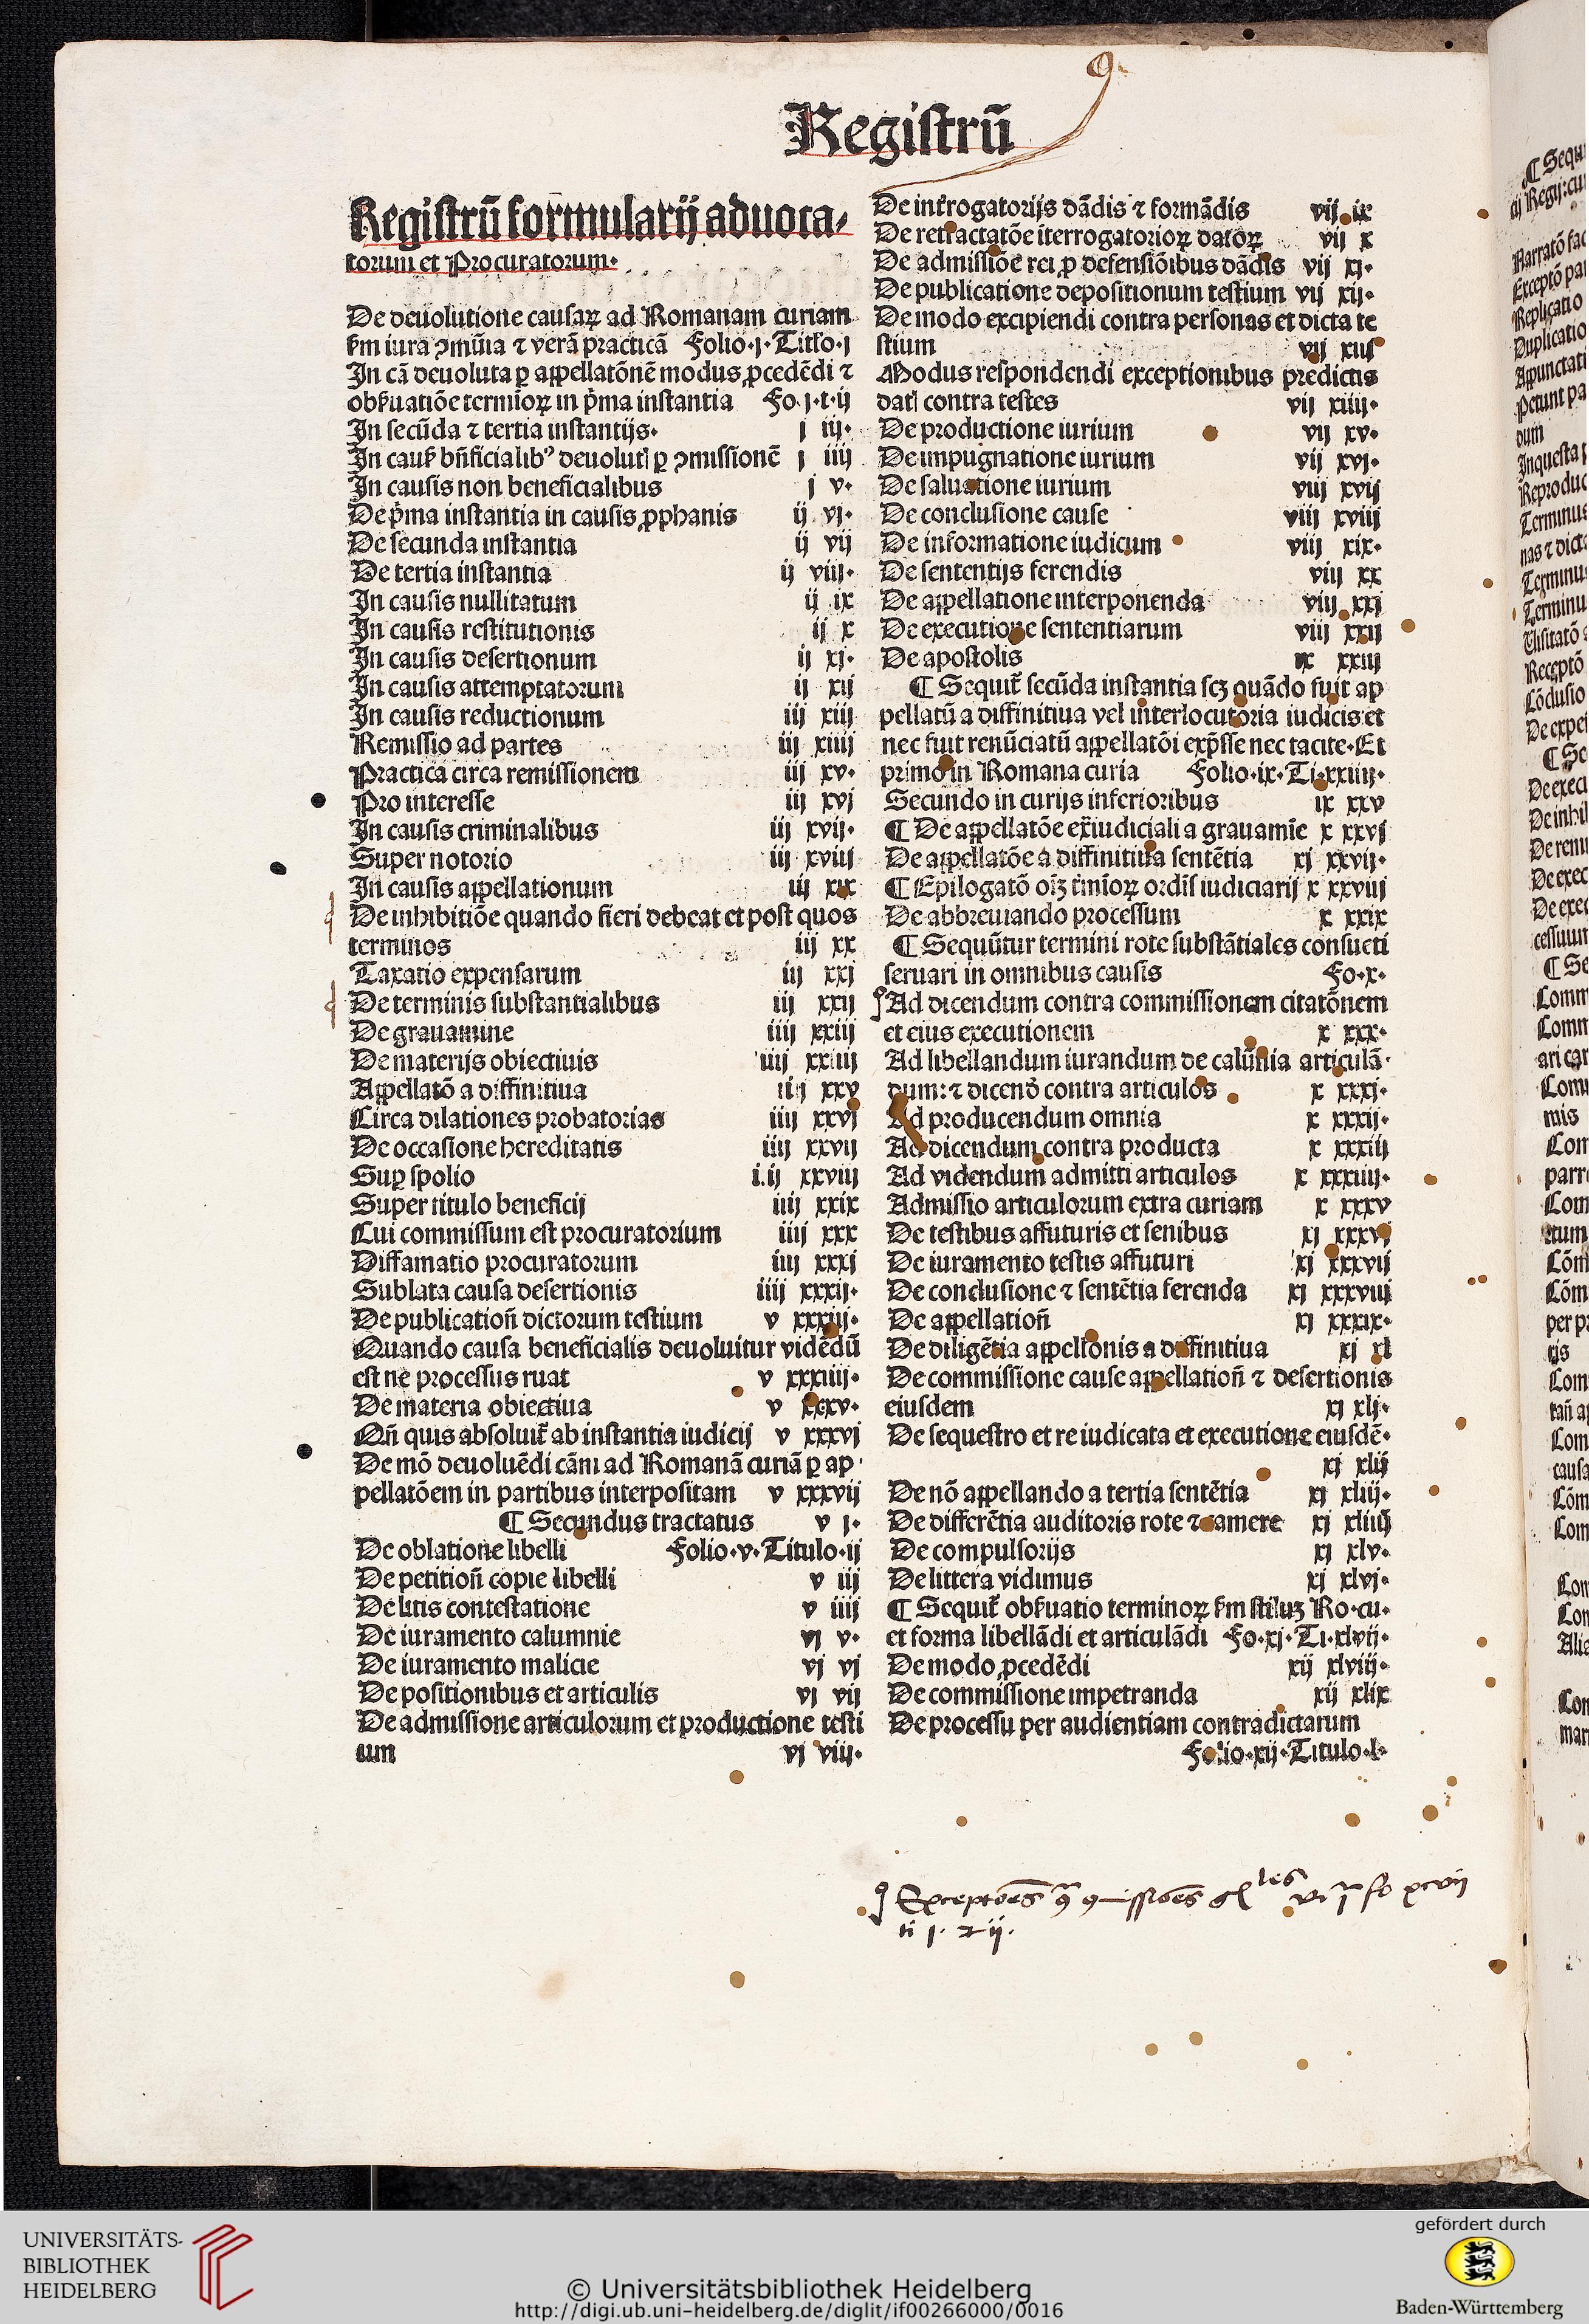 Registrū
Registrū formularij aduoca-
torum et Procuratorum.
De deuolutione causaꝝ ad Romanam curiam
ẜm iura ꝯmūia ⁊ verā practicā Folio.j.Titło.j
In cā deuoluta ꝑ appellatōnē modus ꝓcedēdi ⁊
obẜuatiōe termīoꝝ in p̄ma instantia Fo.j.t.ij
In secūda ⁊ tertia instantijs. j iij.
In cauẜ bn̄ficialibꝰ deuolutꝭ ꝑ ꝯmissionē j iiij
In causis non beneficialibus j v.
De p̄ma instantia in causis ꝓphanis ij vj.
De secunda instantia ij vij
De tertia instantia ij viij.
In causis nullitatum ij ix
In causis restitutionis ij x
In causis desertionum ij xj.
In causis attemptatorum ij xij
In causis reductionum iij xiij
Remissio ad partes iij xiiij
Practica circa remissionem iij xv.
Pro interesse iij xvj
In causis criminalibus iij xvij.
Super notorio iij xviij
In causis appellationum iij xix
De inhibitiōe quando fieri debeat et post quos
terminos iij xx
Taxatio expensarum iij xxj
De terminis substantialibus iij xxij
De grauamine iiij xxiij
De materijs obiectiuis iiij xxiiij
Appellatō a diffinitiua iiij xxv
Circa dilationes probatorias iiij xxvj
De occasione hereditatis iiij xxvij
Suꝑ spolio i.ij xxviij
Super titulo beneficij iiij xxix
Cui commissum est procuratorium iiij xxx
Diffamatio procuratorum iiij xxxj
Sublata causa desertionis iiij xxxij.
De publication̄ dictorum testium v xxxiij.
Quando causa beneficialis deuoluitur vidēdū
est ne processus ruat v xxxiiij.
De materia obiectiua v xxxv.
Qn̄ quis absoluit̄ ab instantia iudicij v xxxvj
De mō deuoluēdi cām ad Romanā curiā ꝑ ap
pellatōem in partibus interpositam v xxxvij
¶ Secundus tractatus v j.
De oblatione libelli Folio.v.Titulo.ij
De petition̄ copie libelli v iij
De litis contestatione v iiij
De iuramento calumnie vj v.
De iuramento malicie vj vj
De positionibus et articulis vj vij
De admissione articulorum et productione testi
ium vj viij.
De int̄rogatorijs dādis ⁊ formādis vij ix
De retractatōe iterrogatorioꝝ datoꝝ vij x
De admissiōe rei ꝓ defensiōibus dādis vij xj.
De publicatione depositionum testium vij xij.
De modo excipiendi contra personas et dicta te
stium vij xiij
Modus respondendi exceptionibus predictis
datꝭ contra testes vij xiiij.
De productione iurium vij xv.
De impugnatione iurium vij xvj.
De saluatione iurium viij xvij
De conclusione cause viij xviij
De informatione iudicum viij xix.
De sententijs ferendis viij xx
De appellatione interponenda viij xxj
De executione sententiarum viij xxij
De apostolis ix xxiij
¶ Sequit̄ secūda instantia scꝫ quādo fuit ap
pellatū a diffinitiua vel interlocutoria iudicis et
nec fuit renūciatū appellatōi exp̄sse nec tacite. Et
primo in Romana curia Folio.ix.Ti.xxiiij.
Secundo in curijs inferioribus ix xxv
¶ De appellatōe ex̄iudiciali a grauamīe x xxvj
De appellatōe a diffinitiua sentētia xj xxvij.
¶ Epilogatō oīꝫ t̄mīoꝝ ordīs iudiciarij x xxviij
De abbreuiando processum x xxix
¶ Sequūtur termini rote substātiales consueti
seruari in omnibus causis Fo.x.
Ad dicendum contra commissionem citatōnem
et eius executionem x xxx.
Ad libellandum iurandum de calūnia articulā
dum: ⁊ dicend̄ contra articulos x xxxj.
Ad producendum omnia x xxxij.
Ad dicendum contra producta x xxxiij
Ad videndum admitti articulos x xxxiiij.
Admissio articulorum extra curiam x xxxv
De testibus affuturis et senibus xj xxxvj
De iuramento testis affuturi xj xxxvij
De conclusione ⁊ sentētia ferenda xj xxxviij
De appellation̄ xj xxxix.
De diligētia appellōnis a diffinitiua xj xl
De commissione cause appellation̄ ⁊ desertionis
eiusdem xj xlj.
De sequestro et re iudicata et executione eiusdē.
xj xlij
De nō appellando a tertia sentētia xj xliij.
De differētia auditoris rote ⁊ camere xj xliiij
De compulsorijs xj xlv.
De littera vidimus xj xlvj.
¶ Sequit̄ obẜuatio terminoꝝ ẜm stiluꝫ Ro.cu.
et forma libellādi et articulādi Fo.xj.Ti.xlvij.
De modo ꝓcedēdi xij xlviij.
De commissione impetranda xij xlix
De processu per audientiam contradictarum
Folio.xij.Titulo.l.
fo xcvii
ti j. ⁊ ij.
UNIVERSITÄTS-
BIBLIOTHEK
HEIDELBERG
© Universitätsbibliothek Heidelberg
http://digi.ub.uni-heidelberg.de/diglit/if00266000/0016
gefördert durch
Baden-Württemberg